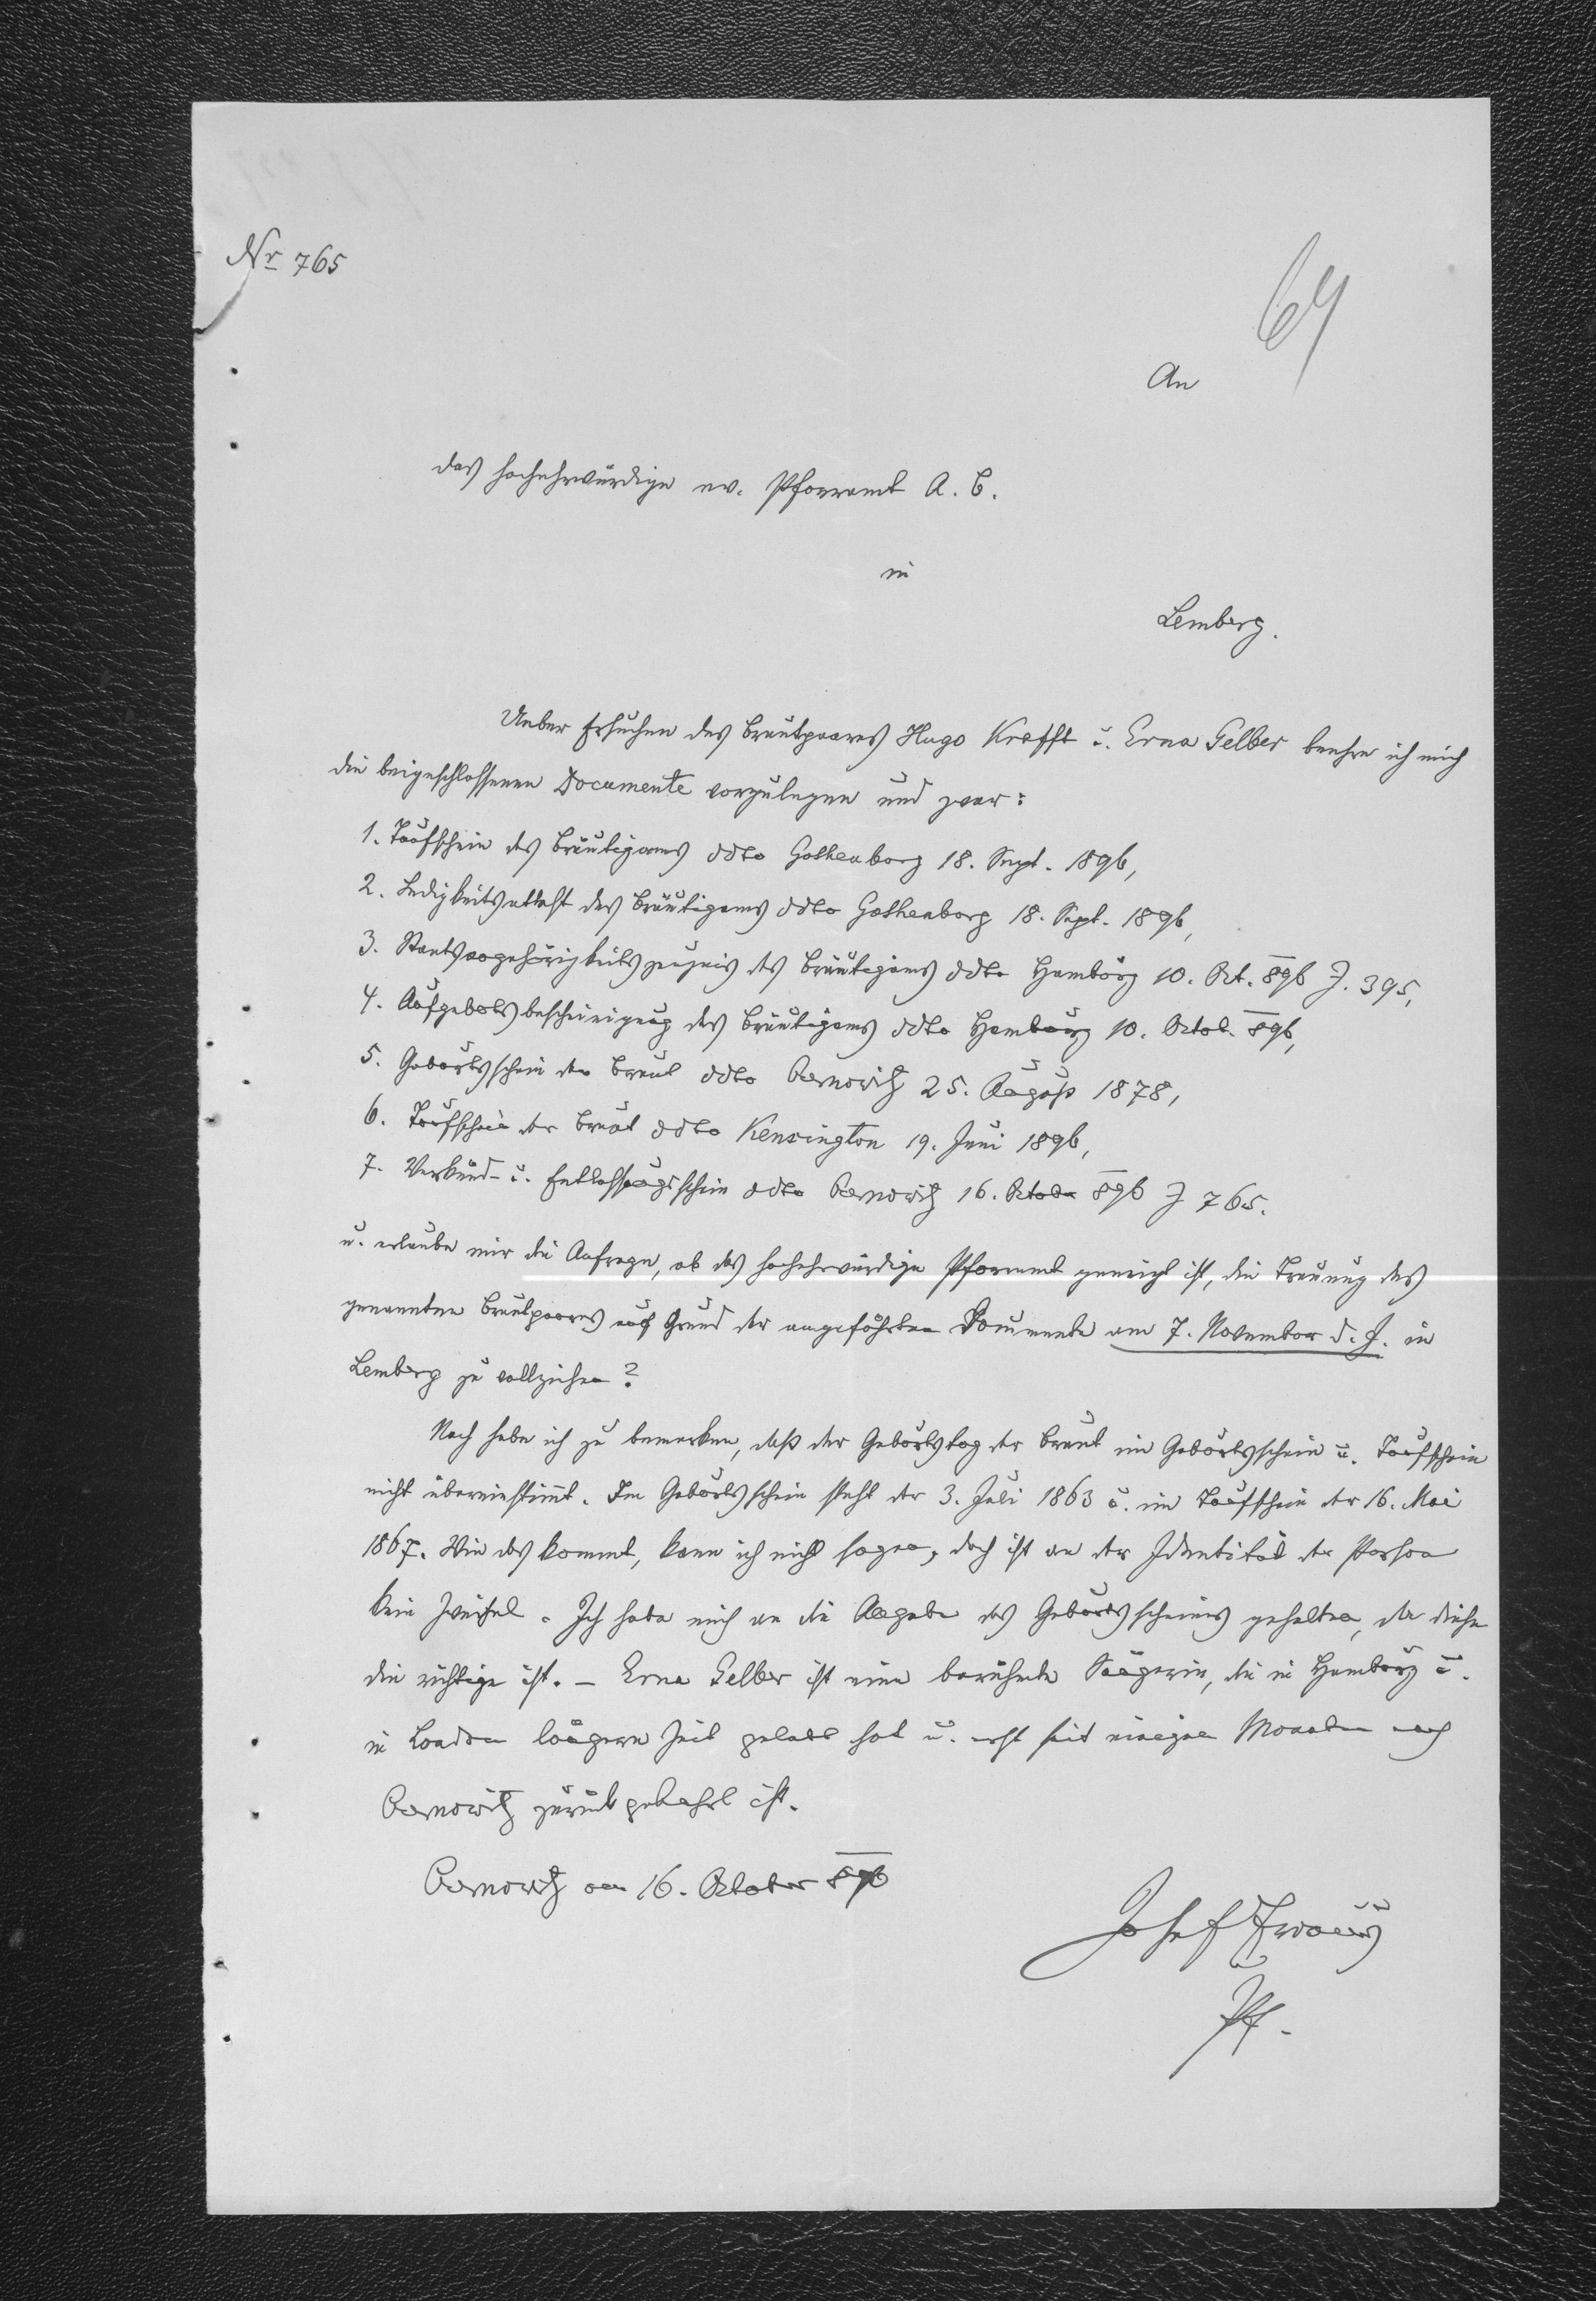 Nr 765
64
An
das hochehrwürdige ev. Pfarramt A. C.
in
Lemberg.
Ueber Ersuchen des Brautpaares Hugo Krafft u. Erna Gelber beehre ich mich
die beigeschlossenen Documente vorzulegen und zwar:
1. Taufschein des Bräutigams ddto Gothenborg 18. Sept. 1896,
2. Ledigkeitsattest des Bräutigams ddto Gothenborg 18. Sept. 1896,
3. Staatsangehörigkeitszeugnis des Bräutigams ddto Hamburg 10. Okt. 896 Z. 395,
4. Aufgebotsbescheinigung des Bräutigams ddto Hamburg 10. Octob. 896,
5. Geburtsschein der Braut ddto Czernowitz 25. August 1878,
6. Taufschein der Braut ddto Kensington 19. Juni 1896,
7. Verkünd- u. Entlassungsschein ddto Czernowitz 16. Oktober 896 Z 765.
u. erlaube mir die Anfrage, ob das hochehrwürdige Pfarramt geneigt ist, die Trauung des
genannten Brautpaares auf Grund der angeführten Documente am 7. November d. J. in
Lemberg zu vollziehen?
Noch habe ich zu bemerken, daß der Geburtstag der Braut im Geburtsschein u. Taufschein
nicht übereinstimmt. Im Geburtsschein steht der 3. Juli 1863 u. im Taufschein der 16. Mai
1867. Wie das kommt, kann ich nicht sagen, doch ist an der Identität der Person
kein Zweifel. Ich habe mich an die Angabe des Geburtsscheines gehalten, da diese
die richtige ist. – Erna Gelber ist eine berühmte Sängerin, die in Hamburg u.
in London längere Zeit gelebt hat u. erst seit einigen Monaten nach
Czernowitz zurückgekehrt ist.
Czernowitz am 16. Oktober 896
Josef
Pf.